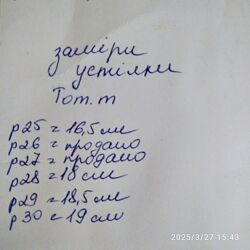 заміри
устілки
Tom.m
р25 = 16,5 см
р26 = продано
р27 = продано
р28 = 18 см
р29 = 18,5 см
р30 = 19 см
2025/3/27 15:43